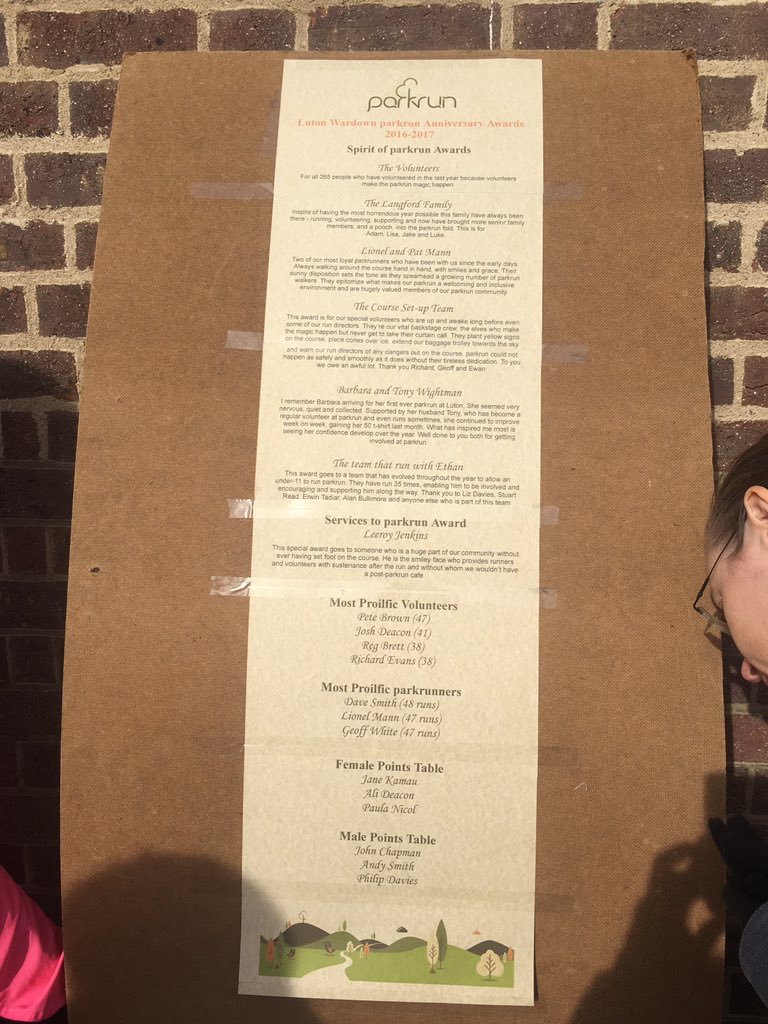 parkrun
Luton Wardown parkrun Anniversary Awards
2016-2017
Spirit of parkrun Awards
The Volunteers
For all 265 people who have volunteered in the last year because volunteers
make the parkrun magic happen
The Langford Family
Inspite of having the most horrendous year possible this family have always been
there - running, volunteering, supporting and now have brought more senior family
members, and a pooch, into the parkrun fold. This is for
Adam, Lisa, Jake and Luke.
Lionel and Pat Mann
Two of our most loyal parkrunners who have been with us since the early days.
Always walking around the course hand in hand, with smiles and grace. Their
sunny disposition sets the tone as they spearhead a growing number of parkrun
walkers. They epitomize what makes our parkrun a welcoming and inclusive
environment and are hugely valued members of our parkrun community.
The Course Set-up Team
This award is for our special volunteers who are up and awake long before even
some of our run directors. They're our vital backstage crew, the elves who make
the magic happen but never get to take their curtain call. They plant yellow signs
on the course, place cones over ice, extend our baggage trolley towards the sky
and warn our run directors of any dangers out on the course. parkrun could not
happen as safely and smoothly as it does without their tireless dedication. To you
we owe an awful lot. Thank you Richard, Geoff and Ewan
Barbara and Tony Wightman
I remember Barbara arriving for her first ever parkrun at Luton. She seemed very
nervous, quiet and collected. Supported by her husband Tony, who has become a
regular volunteer at parkrun and even runs sometimes, she continued to improve
week on week, gaining her 50 t-shirt last month. What has inspired me most is
seeing her confidence develop over the year. Well done to you both for getting
involved at parkrun
The team that run with Ethan
This award goes to a team that has evolved throughout the year to allow an
under-11 to run parkrun. They have run 35 times, enabling him to be involved and
encouraging and supporting him along the way. Thank you to Liz Davies, Stuart
Read, Erwin Tadiar, Alan Bullimore and anyone else who is part of this team
Services to parkrun Award
Leeroy Jenkins
This special award goes to someone who is a huge part of our community without
ever having set foot on the course. He is the smiley face who provides runners
and volunteers with sustenance after the run and without whom we wouldn't have
a post-parkrun cafe
Most Proilfic Volunteers
Pete Brown (47)
Josh Deacon (41)
Reg Brett (38)
Richard Evans (38)
Most Proilfic parkrunners
Dave Smith (48 runs)
Lionel Mann (47 runs)
Geoff White (47 runs)
Female Points Table
Jane Kamau
Ali Deacon
Paula Nicol
Male Points Table
John Chapman
Andy Smith
Philip Davies